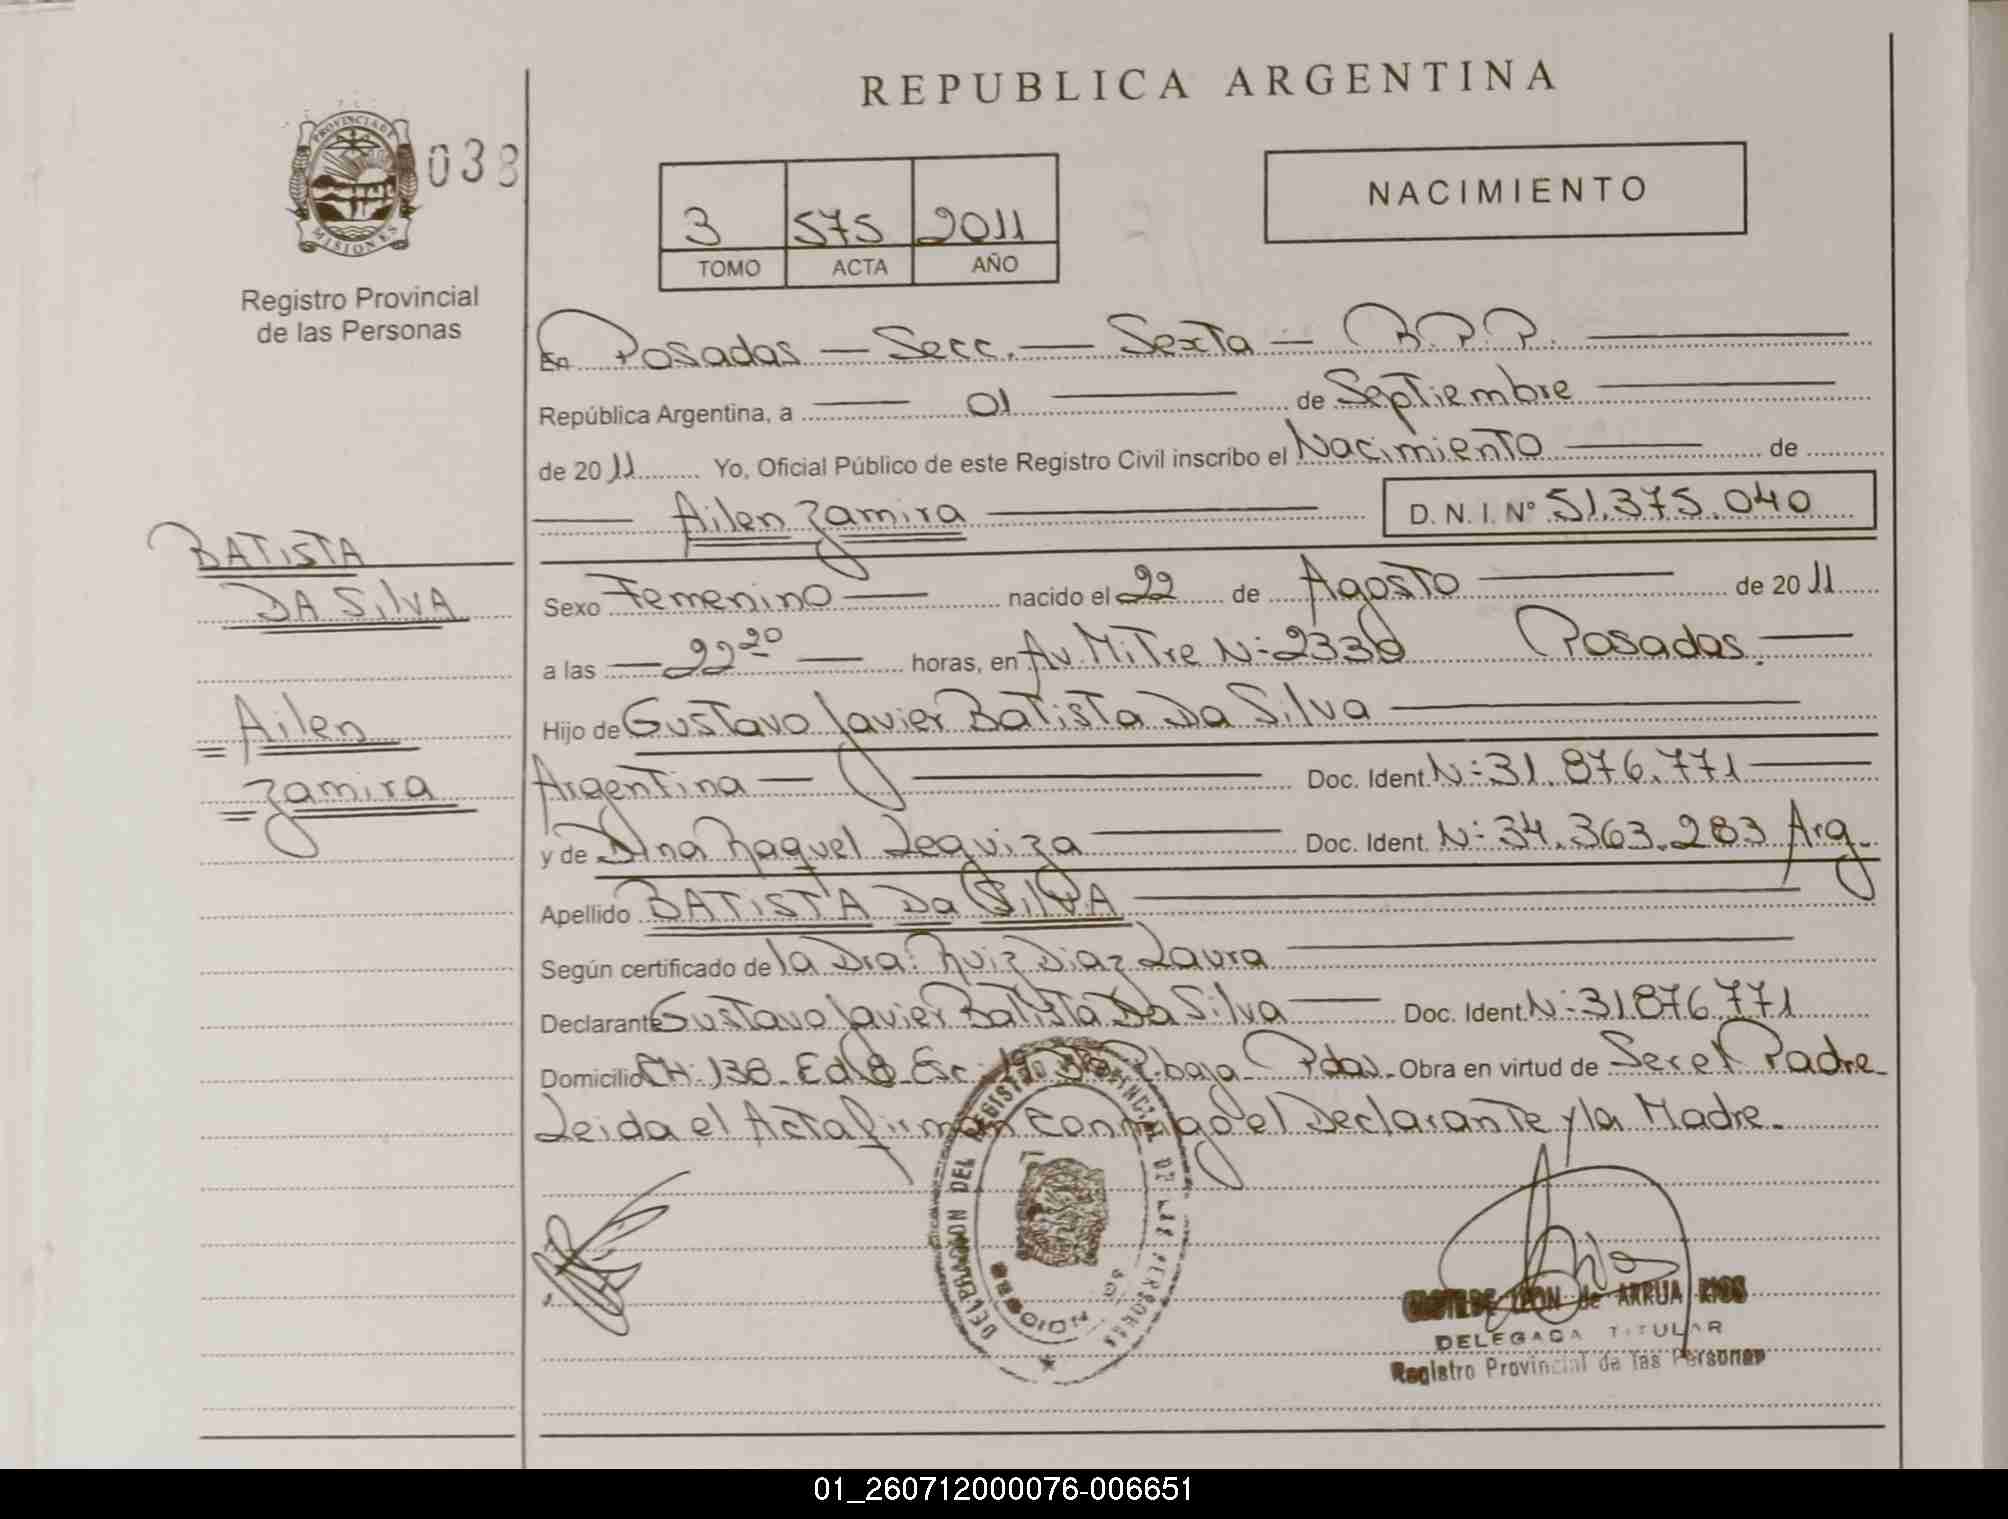 REPUBLICA ARGENTINA
PROVINCIA DE MISIONES
038
Registro Provincial
de las Personas
3 575 2011
TOMO ACTA AÑO
NACIMIENTO
En Posadas — Secc. — Sexta — R.P.P.
República Argentina, a — 01 — de Septiembre
de 2011 Yo, Oficial Público de este Registro Civil inscribo el Nacimiento — de
— Ailen Zamira — D. N. I. Nº 51.375.040
BATISTA
DA SILVA
Ailen
Zamira
Sexo Femenino — nacido el 22 de Agosto — de 2011
a las — 22 20 — horas, en Av. Mitre Nº 2330 Posadas. —
Hijo de Gustavo Javier Batista Da Silva —
Argentina — Doc. Ident. Nº 31.876.771 —
y de Dina Raquel Leguiza — Doc. Ident. Nº 34.363.283 Arg.
Apellido BATISTA Da SilVA —
Según certificado de la Dra: Ruiz Diaz Laura —
Declarante Gustavo Javier Batista Da Silva — Doc. Ident. Nº 31876.771
Domicilio CH. 138. Ed. 8 Esc. P. baja Pdas. Obra en virtud de Ser el Padre
Leida el Acta firman conmigo el Declarante y la Madre.
DELEGACION DEL REGISTRO PROVINCIAL DE LAS PERSONAS
LEON de ARRUA RIOS
DELEGADA TITULAR
Registro Provincial de las Personas
01_260712000076-006651